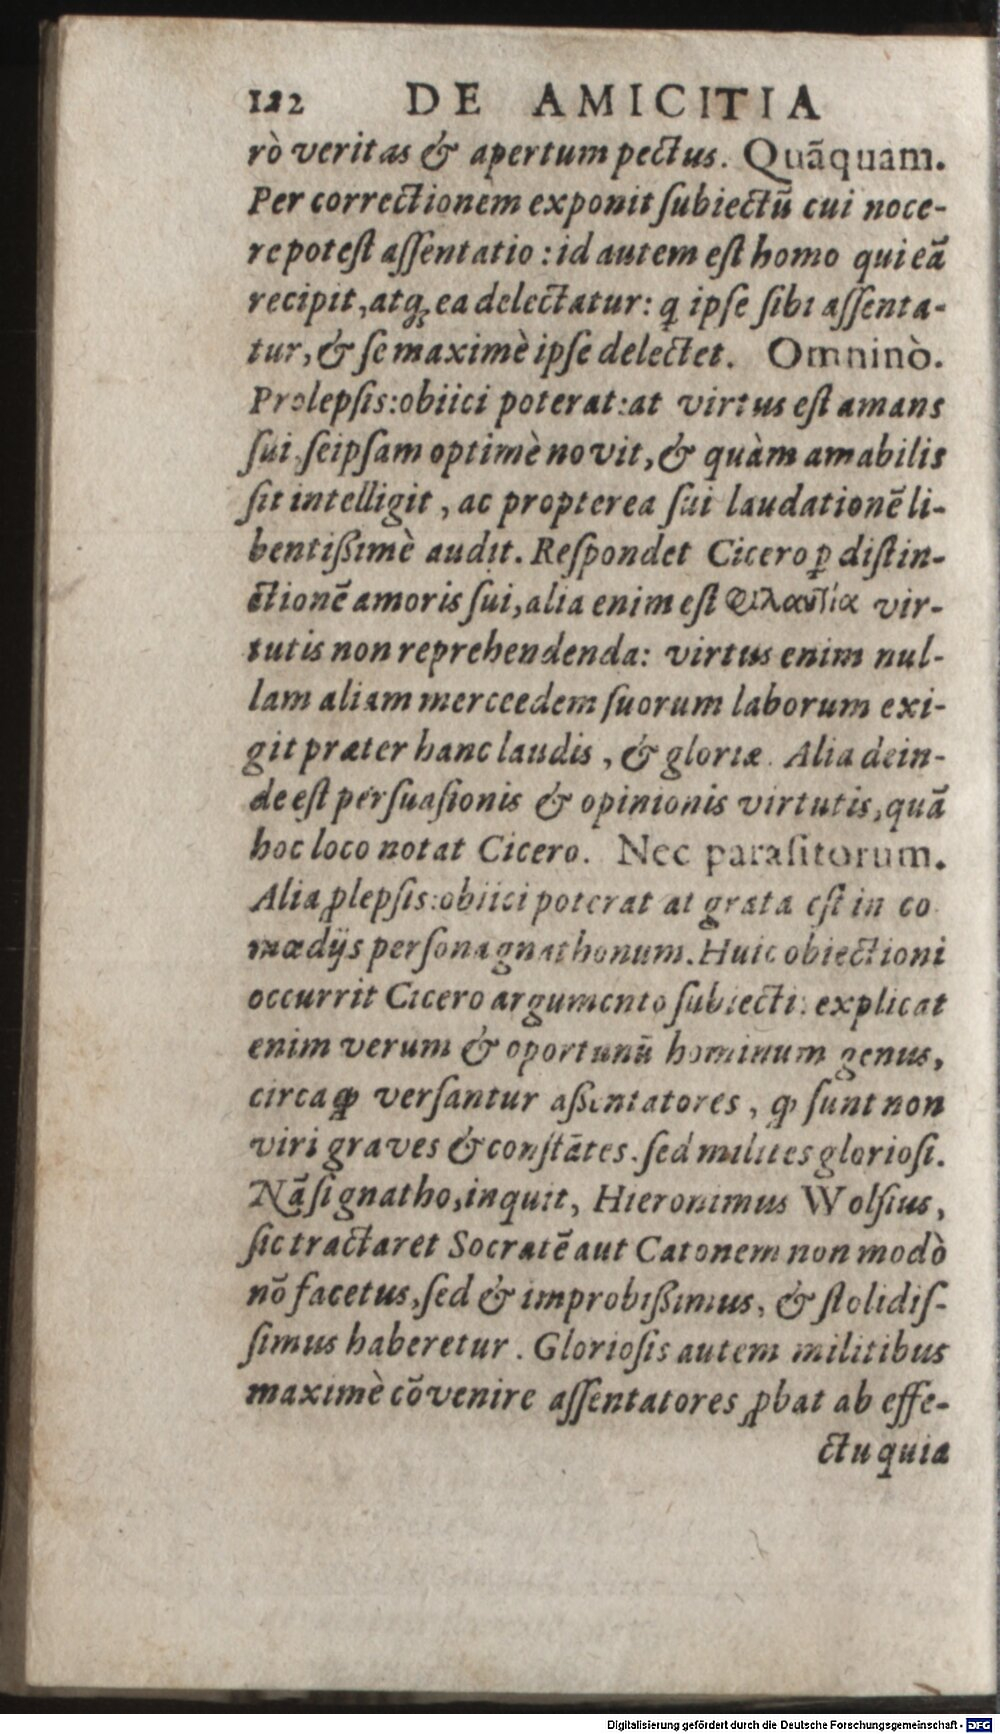 122 DE AMICITIA
rò veritas & apertum pectus. Quãquam.
Per correctionem exponit ſubiectũ cui noce-
re poteſt aſſentatio : id autem eſt homo qui eã
recipit, atq; ea delectatur: q ipſe ſibi aſſenta-
tur, & ſe maximè ipſe delectet. Omninò.
Prolepſis: obiici poterat: at virtus eſt amans
ſui, ſeipſam optimè novit, & quàm amabilis
ſit intelligit, ac propterea ſui laudationẽ li-
bentißimè audit. Reſpondet Cicero ꝑ diſtin-
ctionẽ amoris ſui, alia enim eſt Φιλαυτία vir-
tutis non reprehendenda: virtus enim nul-
lam aliam merceedem ſuorum laborum exi-
git præter hanc laudis, & gloriæ. Alia dein-
de eſt perſuaſionis & opinionis virtutis, quã
hoc loco notat Cicero. Nec paraſitorum.
Alia ꝓlepſis: obiici poterat at grata eſt in co
mœdijs perſona gnathonum. Huic obiectioni
occurrit Cicero argumento ſubiecti: explicat
enim verum & oportunũ hominum genus,
circa qꝫ verſantur aßentatores, qꝫ ſunt non
viri graves & conſtãtes. ſed milites glorioſi.
Nã ſi gnatho, inquit, Hieronimus Wolſius,
ſic tractaret Socratẽ aut Catonem non modò
nõ facetus, ſed & improbißimus, & ſtolidiſ-
ſimus haberetur. Glorioſis autem militibus
maximè cõvenire aſſentatores ꝓbat ab effe-
ctu quia
Digitalisierung gefördert durch die Deutsche Forschungsgemeinschaft - DFG